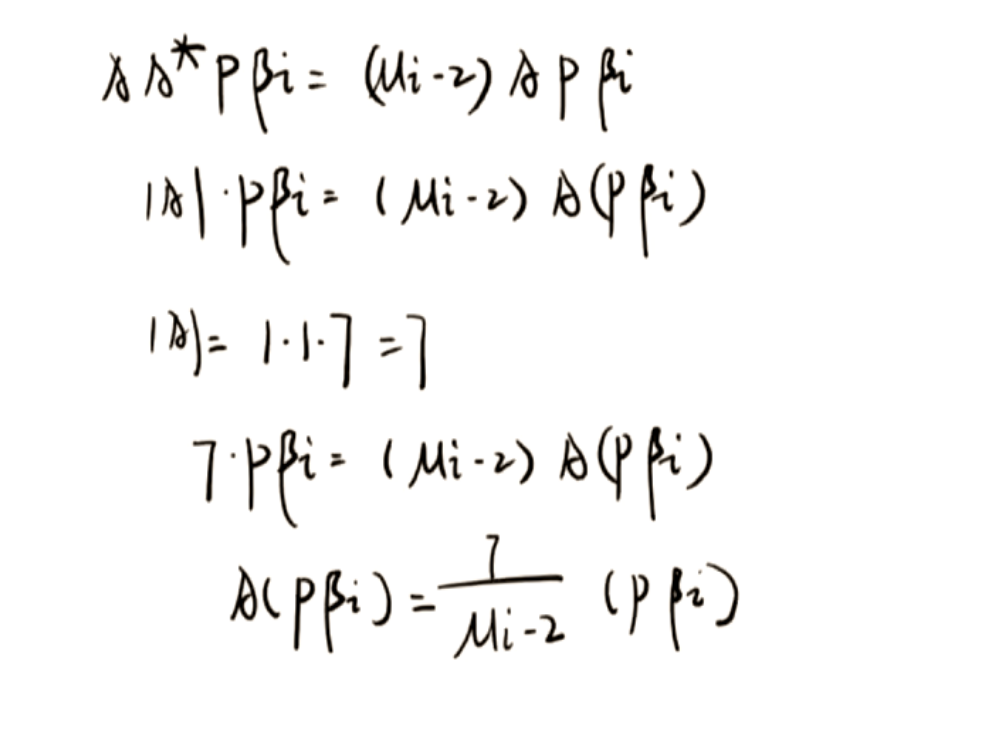 A A* P βi = (μi - 2) A P βi
|A| · P βi = (μi - 2) A(P βi)
|A| = 1 · 1 · 7 = 7
7 · P βi = (μi - 2) A(P βi)
A(P βi) = 7/(μi - 2) (P βi)